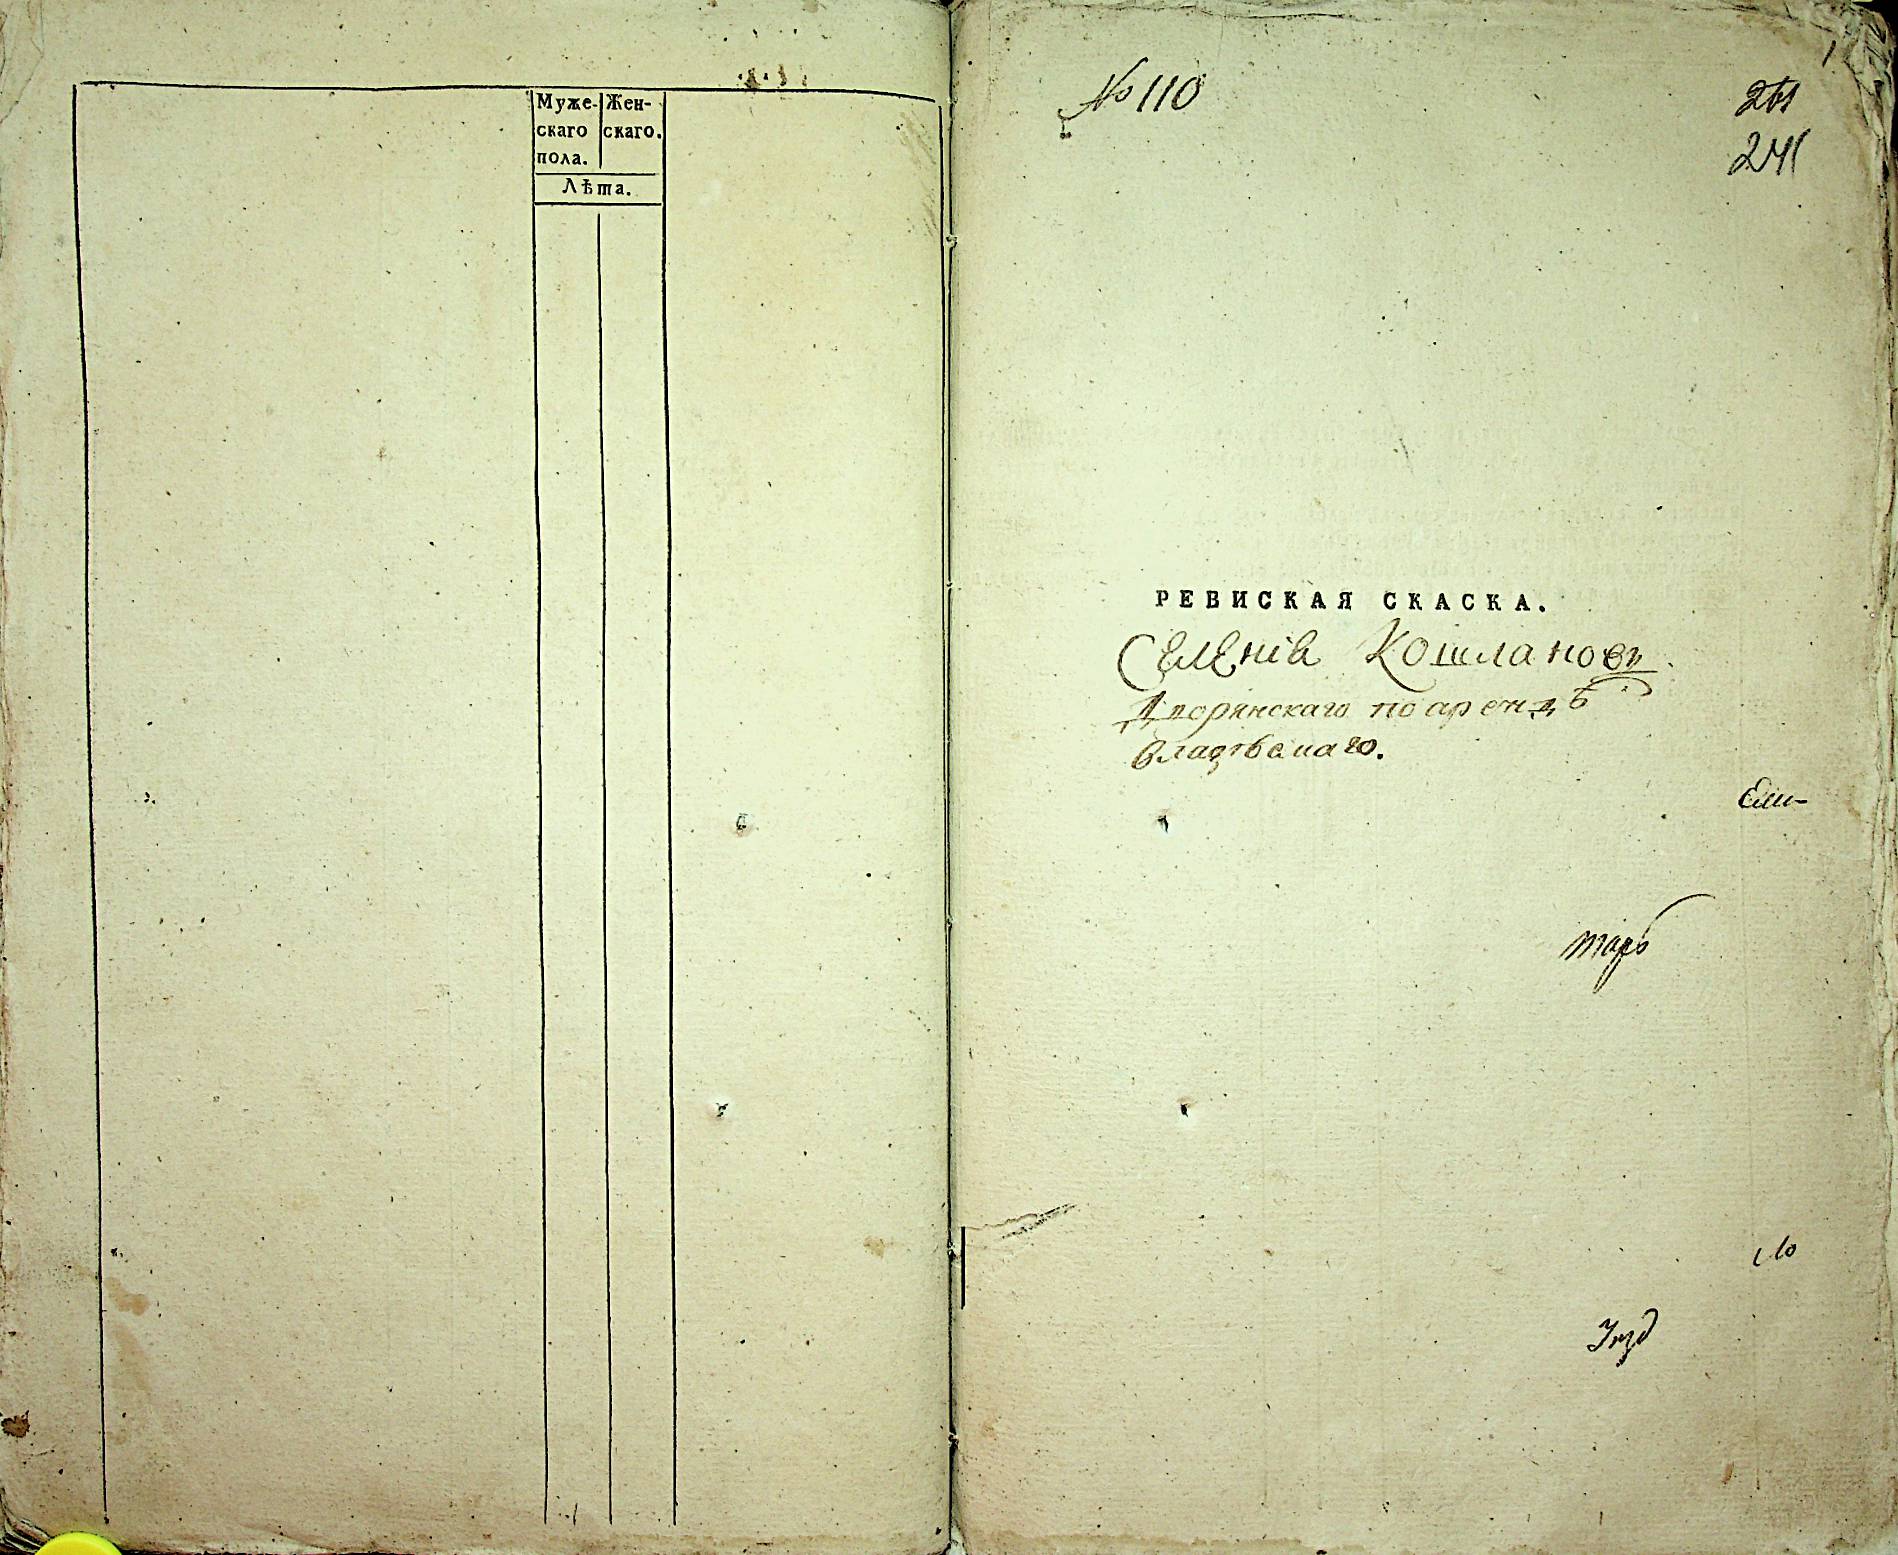 Муже-
скаго
пола.
Жен-
скаго.
Лѣта.
№ 110
261
241
РЕВИСКАЯ СКАСКА.
Селенія Кошланова
Дворянскаго по арендѣ
владѣемаго.